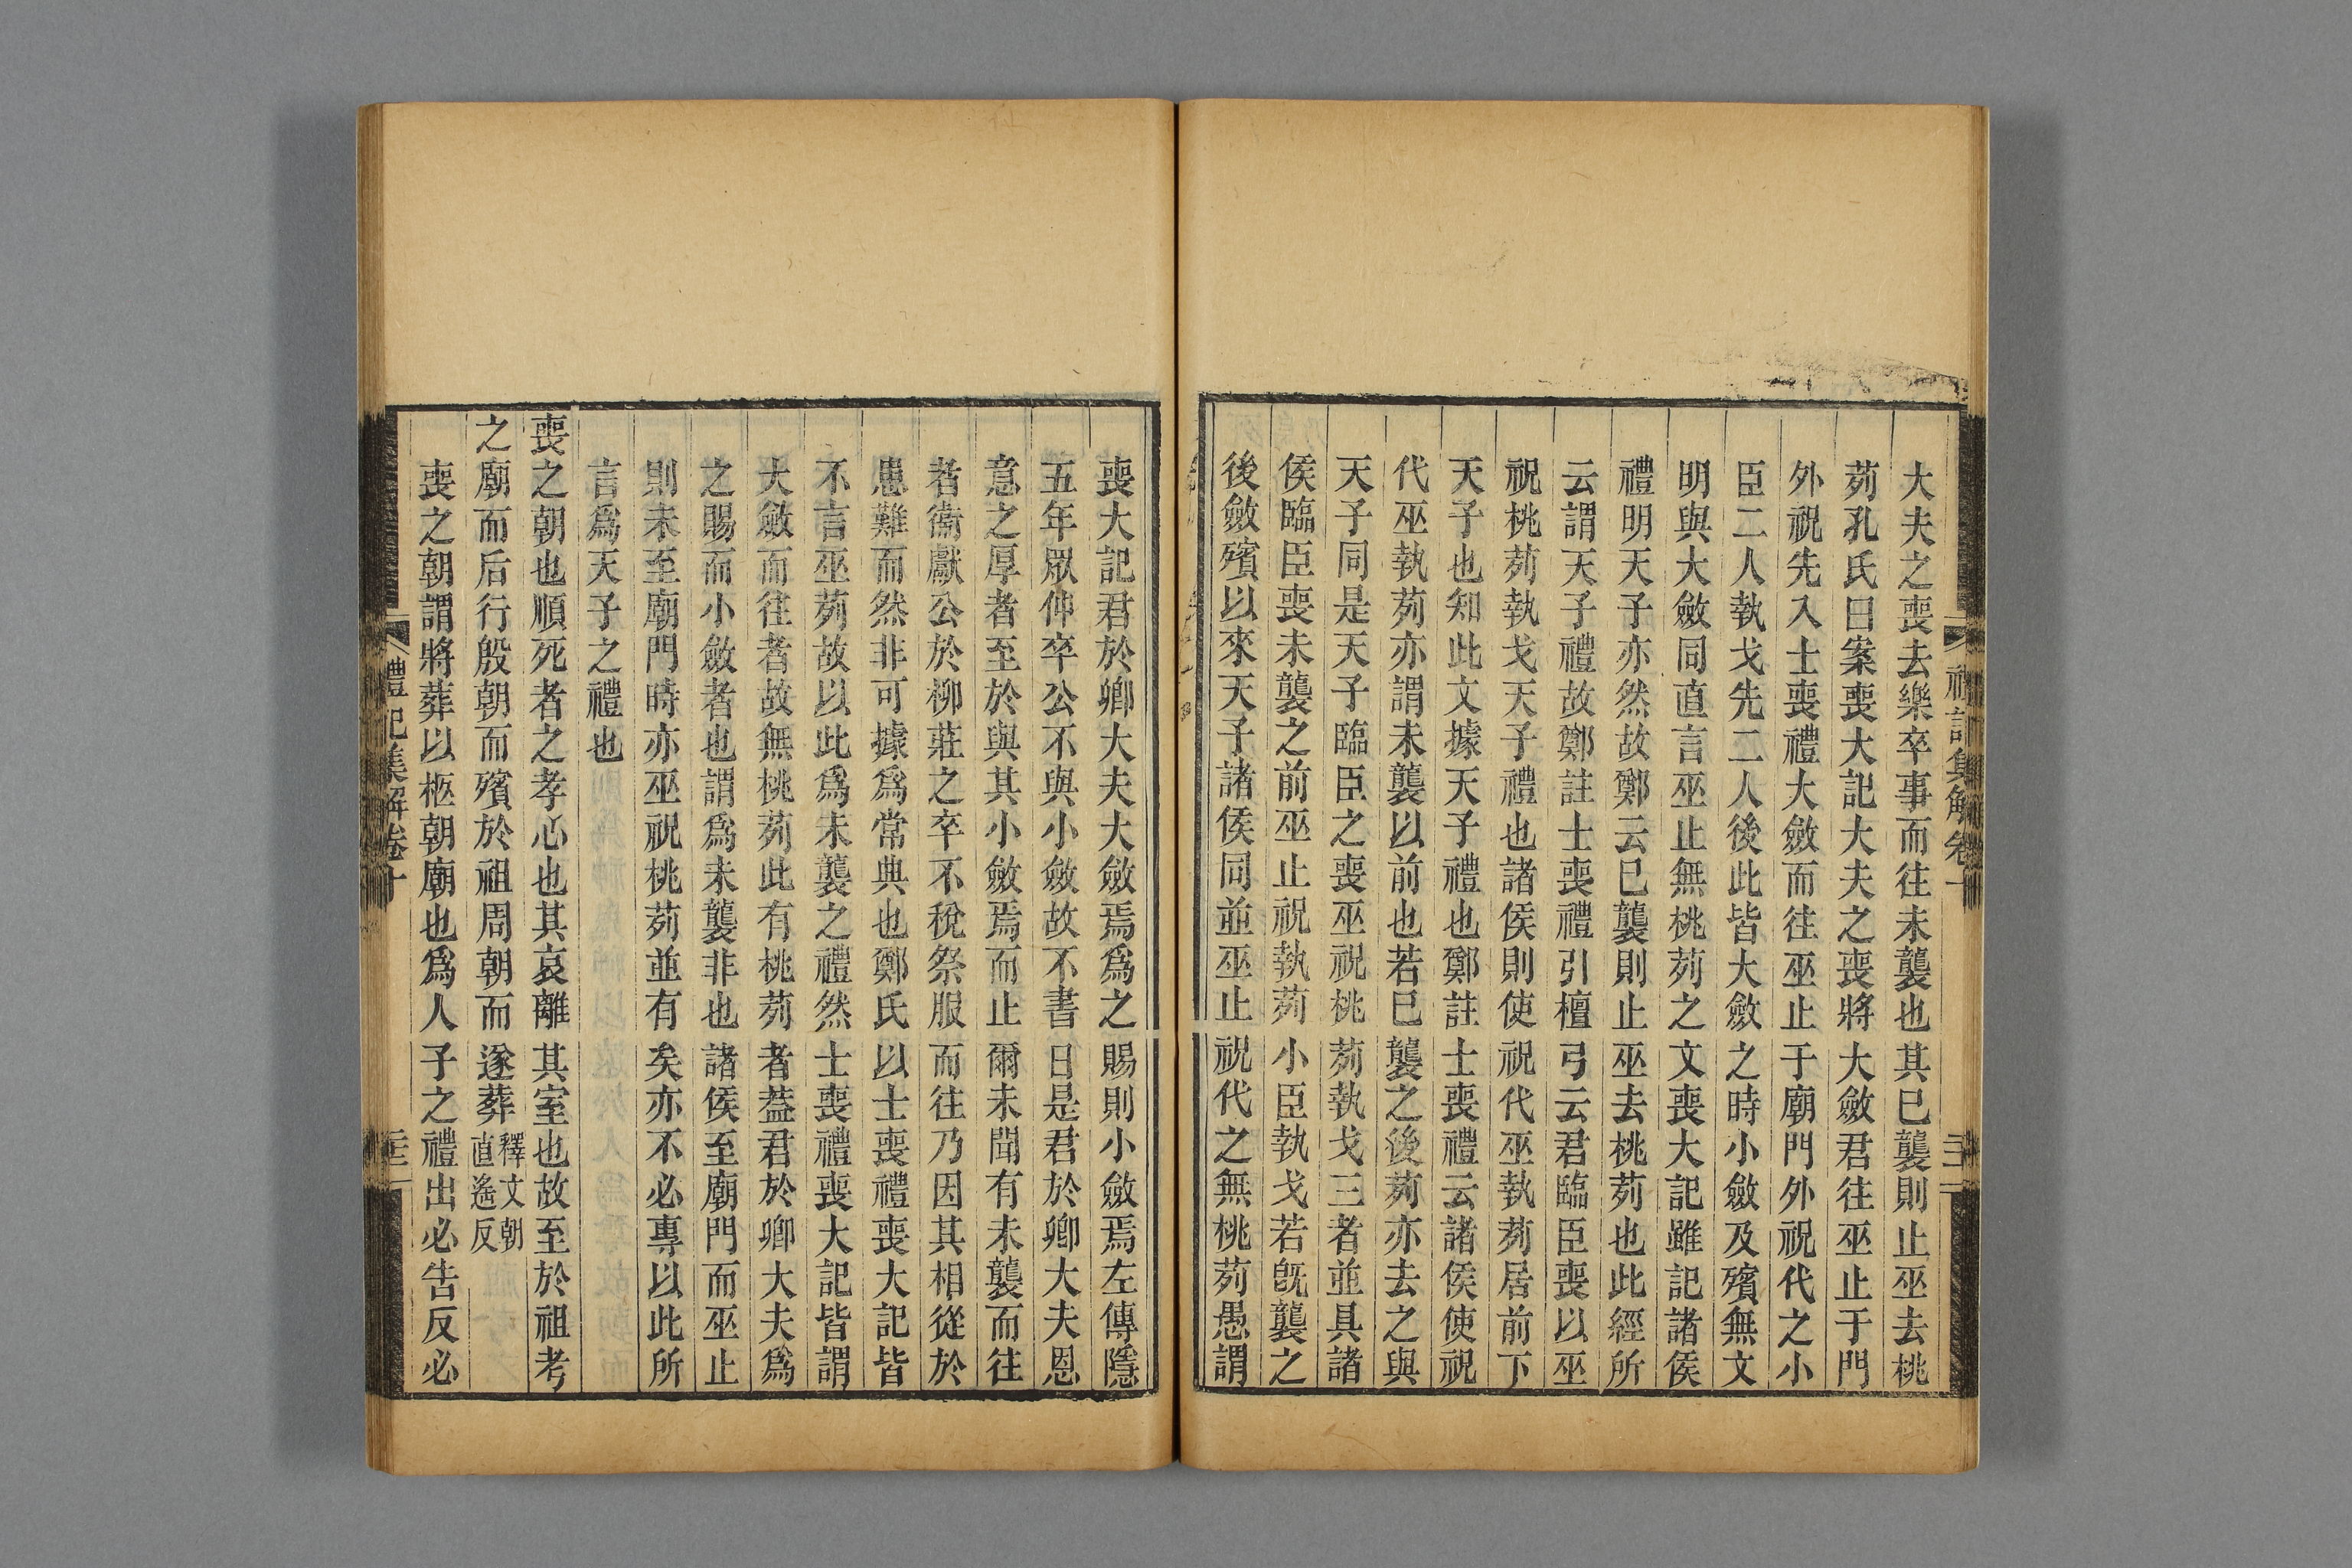 大夫之喪去樂卒事而往未襲也其已襲則止巫去桃
茢孔氏曰案喪大記大夫之喪將大斂君往巫止于門
外祝先入士喪禮大斂而往巫止于廟門外祝代之小
臣二人執戈先二人後此皆大斂之時小斂及殯無文
明與大斂同直言巫止無桃茢之文喪大記雖記諸侯
禮明天子亦然故鄭云已襲則止巫去桃茢也此經所
云謂天子禮故鄭註士喪禮引檀弓云君臨臣喪以巫
祝桃茢執戈天子禮也諸侯則使祝代巫執茢居前下
天子也知此文據天子禮也鄭註士喪禮云諸侯使祝
代巫執茢亦謂未襲以前也若已襲之後茢亦去之與
天子同是天子臨臣之喪巫祝桃茢執戈三者並具諸
侯臨臣喪未襲之前巫止祝執茢小臣執戈若既襲之
後斂殯以來天子諸侯同並巫止祝代之無桃茢愚謂
喪大記君於卿大夫大斂焉爲之賜則小斂焉左傳隱
五年眾仲卒公不與小斂故不書日是君於卿大夫恩
意之厚者至於與其小斂焉而止爾未聞有未襲而往
者衞獻公於柳莊之卒不稅祭服而往乃因其相從於
患難而然非可據爲常典也鄭氏以士喪禮喪大記皆
不言巫茢故以此爲未襲之禮然士喪禮喪大記皆謂
大斂而往者故無桃茢此有桃茢者蓋君於卿大夫爲
之賜而小斂者也謂爲未襲非也諸侯至廟門而巫止
則未至廟門時亦巫祝桃茢並有矣亦不必專以此所
言爲天子之禮也
喪之朝也順死者之孝心也其哀離其室也故至於祖考
之廟而后行殷朝而殯於祖周朝而遂葬釋文朝直遙反
喪之朝謂將葬以柩朝廟也爲人子之禮出必告反必
禮記集解卷十